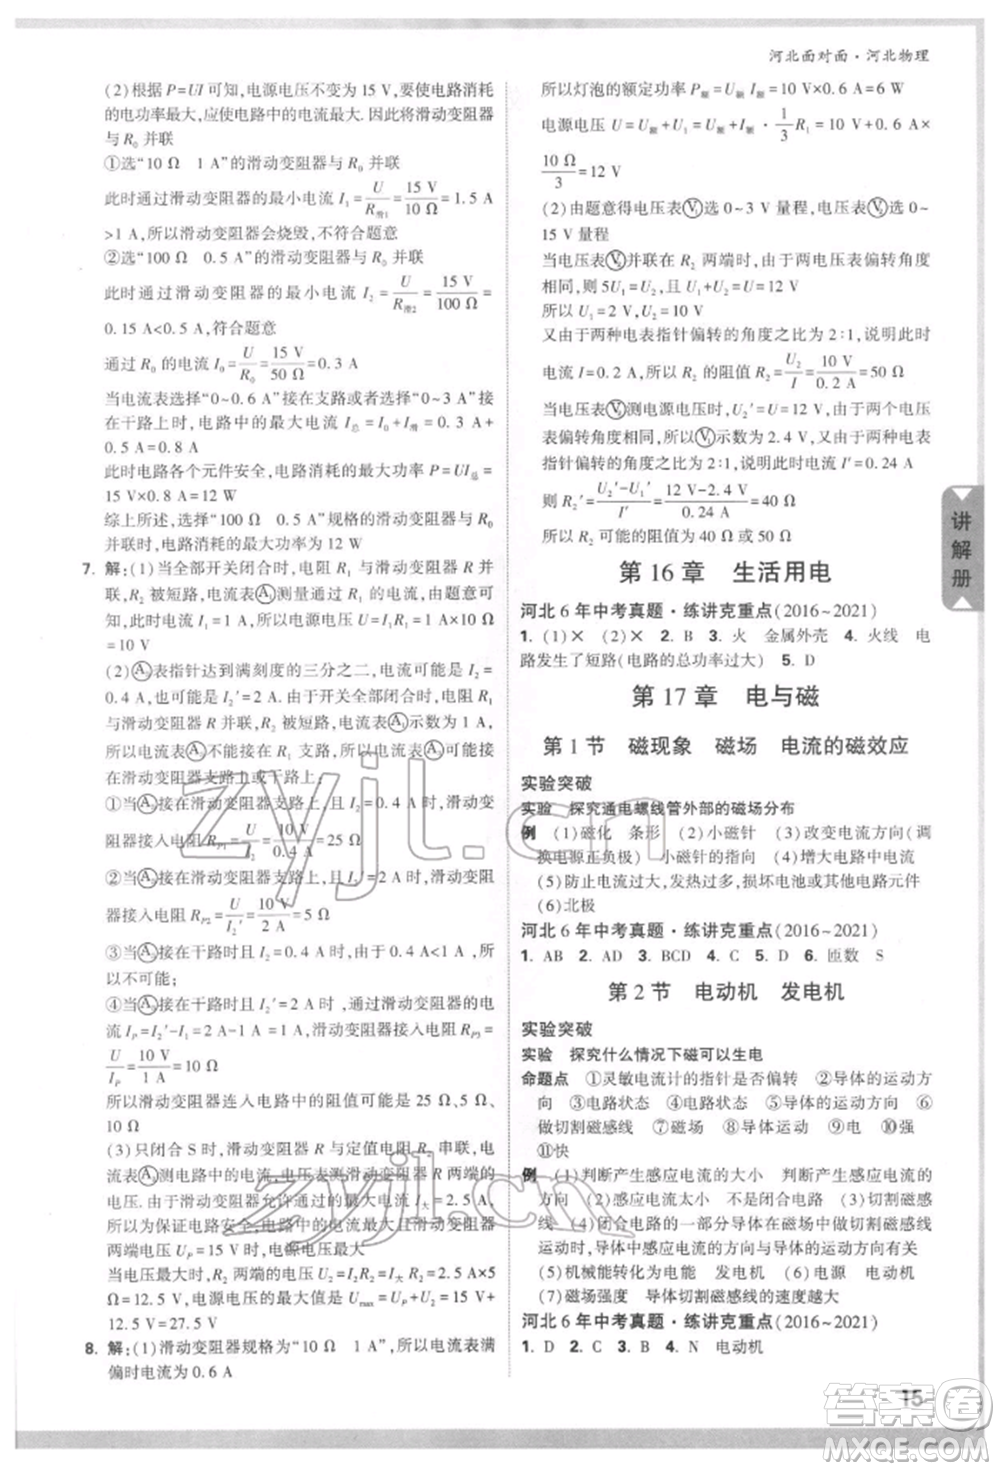 河北面对面·河北物理
(2)根据 P=UI 可知,电源电压不变为 15 V,若使消耗
的电功率最大,应使电路中的电流最大. 因此将滑动变阻器
与 R₀ 并联
①选“10 Ω 1 A”的滑动变阻器与 R₀ 并联
此时通过滑动变阻器的最小电流 I₁=U/R滑1=15 V/10 Ω=1.5 A
>1 A,所以滑动变阻器会烧毁,不符合题意
②选“100 Ω 0.5 A”的滑动变阻器与 R₀ 并联
此时通过滑动变阻器的最小电流 I₂=U/R滑2=15 V/100 Ω=
0.15 A<0.5 A,符合题意
通过 R₀ 的电流 I₀=U/R₀=15 V/50 Ω=0.3 A
当电流表选择“0~0.6 A”接在支路或选择“0~3 A”接
在干路上时,电路中的最大电流 I总=I₀+I滑=0.3 A+
0.5 A=0.8 A
此时电路各个元件安全,电路消耗的最大功率 P=UI总=
15 V×0.8 A=12 W
综上所述,选择“100 Ω 0.5 A”规格的滑动变阻器与 R₀
并联时,电路消耗的最大功率为 12 W
7. 解:(1)当全部开关闭合时,电阻 R₁ 与滑动变阻器 R 并联,R₂
被短路,电流表A₁测量通过 R₁ 的电流,由题意可知,电源
电压 U=U₁=I₁R₁=1 A×10 Ω=10 V
(2)A₂表指针达到满刻度的三分之二,电流可能为 I₂=
0.4 A,也可能为 I₂′=2 A. 由于开关全部闭合时,电阻
R₁ 与滑动变阻器 R 并联,R₂ 被短路,电流表A₁示数为 1 A
所以电流表A₂不可能接在 R₁ 支路,可能接在滑动变阻
器支路或干路上
①当A₂接在滑动变阻器支路上且 I₂=0.4 A 时,滑动变
阻器接入电阻 R_P1=U/I₂=10 V/0.4 A=25 Ω
②当A₂接在滑动变阻器支路上且 I₂′=2 A 时,滑动变阻
器接入电阻 R_P2=U/I₂′=10 V/2 A=5 Ω
③当A₂接在干路时且 I=0.4 A 时,由于 0.4 A<1 A,所
以不可能;
④当A₂接在干路且 I=2 A 时,流过滑动变阻器的电
流 I_P=I₂′-I₁=2 A-1 A=1 A,滑动变阻器接入电阻 R_P3=
U/I_P=10 V/1 A=10 Ω
所以滑动变阻器连入电路中的阻值可能是 25 Ω、5 Ω、
10 Ω
(3)只闭合 S 时,滑动变阻器 R 与定值电阻 R₂ 串联,电
流表A₂测电路中的电流,电压表测滑动变阻器 R 两端的
电压. 由于滑动变阻器允许通过的最大电流 I大=2.5 A,
所以为保证电路安全,电路中的最大电流为 2.5 A,此时电压表
两端电压 U_P=15 V 时,电源电压最大
当电压最大时,R₂ 两端的电压 U₂=I₂R₂=I大R₂=2.5 A×5 Ω
=12.5 V,电源电压的最大值为 U max=U_P+U₂=15 V+
12.5 V=27.5 V
8. 解:(1)滑动变阻器规格为“10 Ω 1 A”,所以电流表满
偏时电流为 0.6 A
所以灯泡的额定功率 P额=U额I额=10 V×0.6 A=6 W
电源电压 U=U额+U₁=U额+I额·1/3R₁=10 V+0.6 A×
10 Ω/3=12 V
(2)由题意得电压表V₁选 0~3 V 量程,电压表V₂选 0~
15 V 量程
当电压表V₂并联在 R₂ 两端时,两电压表偏转角度
相同,则 5U₁=U₂,且 U₁+U₂=U=12 V
所以 U₁=2 V,U₂=10 V
又由于两种电表指针偏转的角度之比为 2:1,说明此时
电流 I=0.2 A,所以 R₂ 的阻值 R₂=U₂/I=10 V/0.2 A=50 Ω
当电压表V₂测电源电压时,U₂′=12 V,由于两个电压
表偏转角度相同,所以V₁示数为 2.4 V,又由于两种电表
指针偏转的角度之比为 2:1,说明此时电流 I′=0.24 A
则 R₂′=U₂′-U₁′/I′=12 V-2.4 V/0.24 A=40 Ω
所以 R₂ 可能的阻值为 50 Ω 或 40 Ω
第 16 章 生活用电
河北 6 年中考真题·练讲克重点(2016~2021)
1. (1)× (5)× 2. B 3. 火 金属外壳 4. 火线 电
路发生了短路(电路的总功率过大) 5. D
第 17 章 电与磁
第 1 节 磁现象 磁场 电流的磁效应
实验突破
实验 探究通电螺线管外部的磁场分布
例 (1)磁化 条形 (2)小磁针 (3)改变电流方向(调
换电源正负极) 小磁针的指向 (4)增大电路中电流
(5)防止电流过大,发热过多,损坏电池或其他电路元件
(6)北极
河北 6 年中考真题·练讲克重点(2016~2021)
1. AB 2. AD 3. BCD 4. C 5. D 6. 匝数 S
第 2 节 电动机 发电机
实验突破
实验 探究什么情况下磁可以生电
命题点 ①灵敏电流计的指针是否偏转 ②导体的运动方
向 ③电路状态 ④电路状态 ⑤导体的运动方向 ⑥
做切割磁感线 ⑦磁场 ⑧导体运动 ⑨电 ⑩强
⑪快
例 (1)判断产生感应电流的大小 判断产生感应电流的
方向 (2)感应电流太小 不是闭合电路 (3)切割磁感
线 (4)闭合电路的一部分导体在磁场中做切割磁感线
运动时,导体中就产生感应电流 导体运动方向 磁场方向
(5)机械能转化为电能 发电机 (6)电源 电动机
(7)磁场强度 导体切割磁感线的速度越大
河北 6 年中考真题·练讲克重点(2016~2021)
1. D 2. C 3. B 4. N 电动机
讲解册
15
zyjl.cn
zyjl.cn
答案圈
MXQE.COM